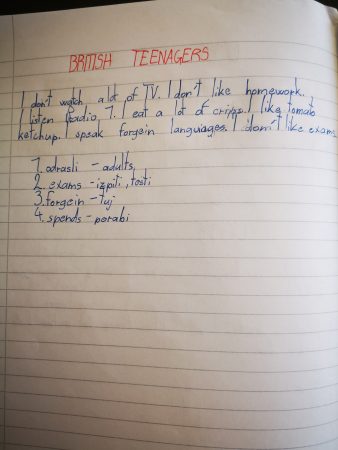 BRITISH TEENAGERS
I don't watch a lot of TV. I don't like homework.
I listen Radio 1. I eat a lot of cripps. I like tomato
ketchup. I speak forgein languages. I don't like exams.
1. odrasli - adults,
2. exams - izpiti, testi
3. forgein - tuj
4. spends - porabi